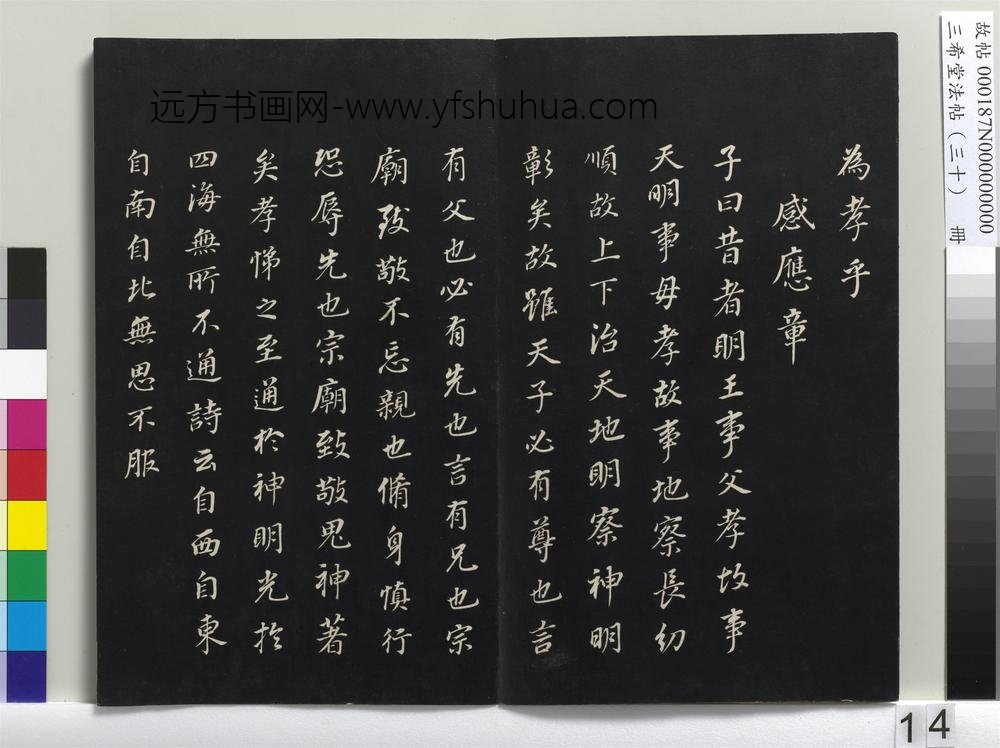 為孝乎
感應章
子曰昔者明王事父孝故事
天明事母孝故事地察長幼
順故上下治天地明察神明
彰矣故雖天子必有尊也言
有父也必有先也言有兄也宗
廟致敬不忘親也脩身慎行
恐辱先也宗廟致敬鬼神著
矣孝悌之至通於神明光於
四海無所不通詩云自西自東
自南自北無思不服
远方书画网-www.yfshuhua.com
故帖 000187N000000000
三希堂法帖（三十） 冊
14